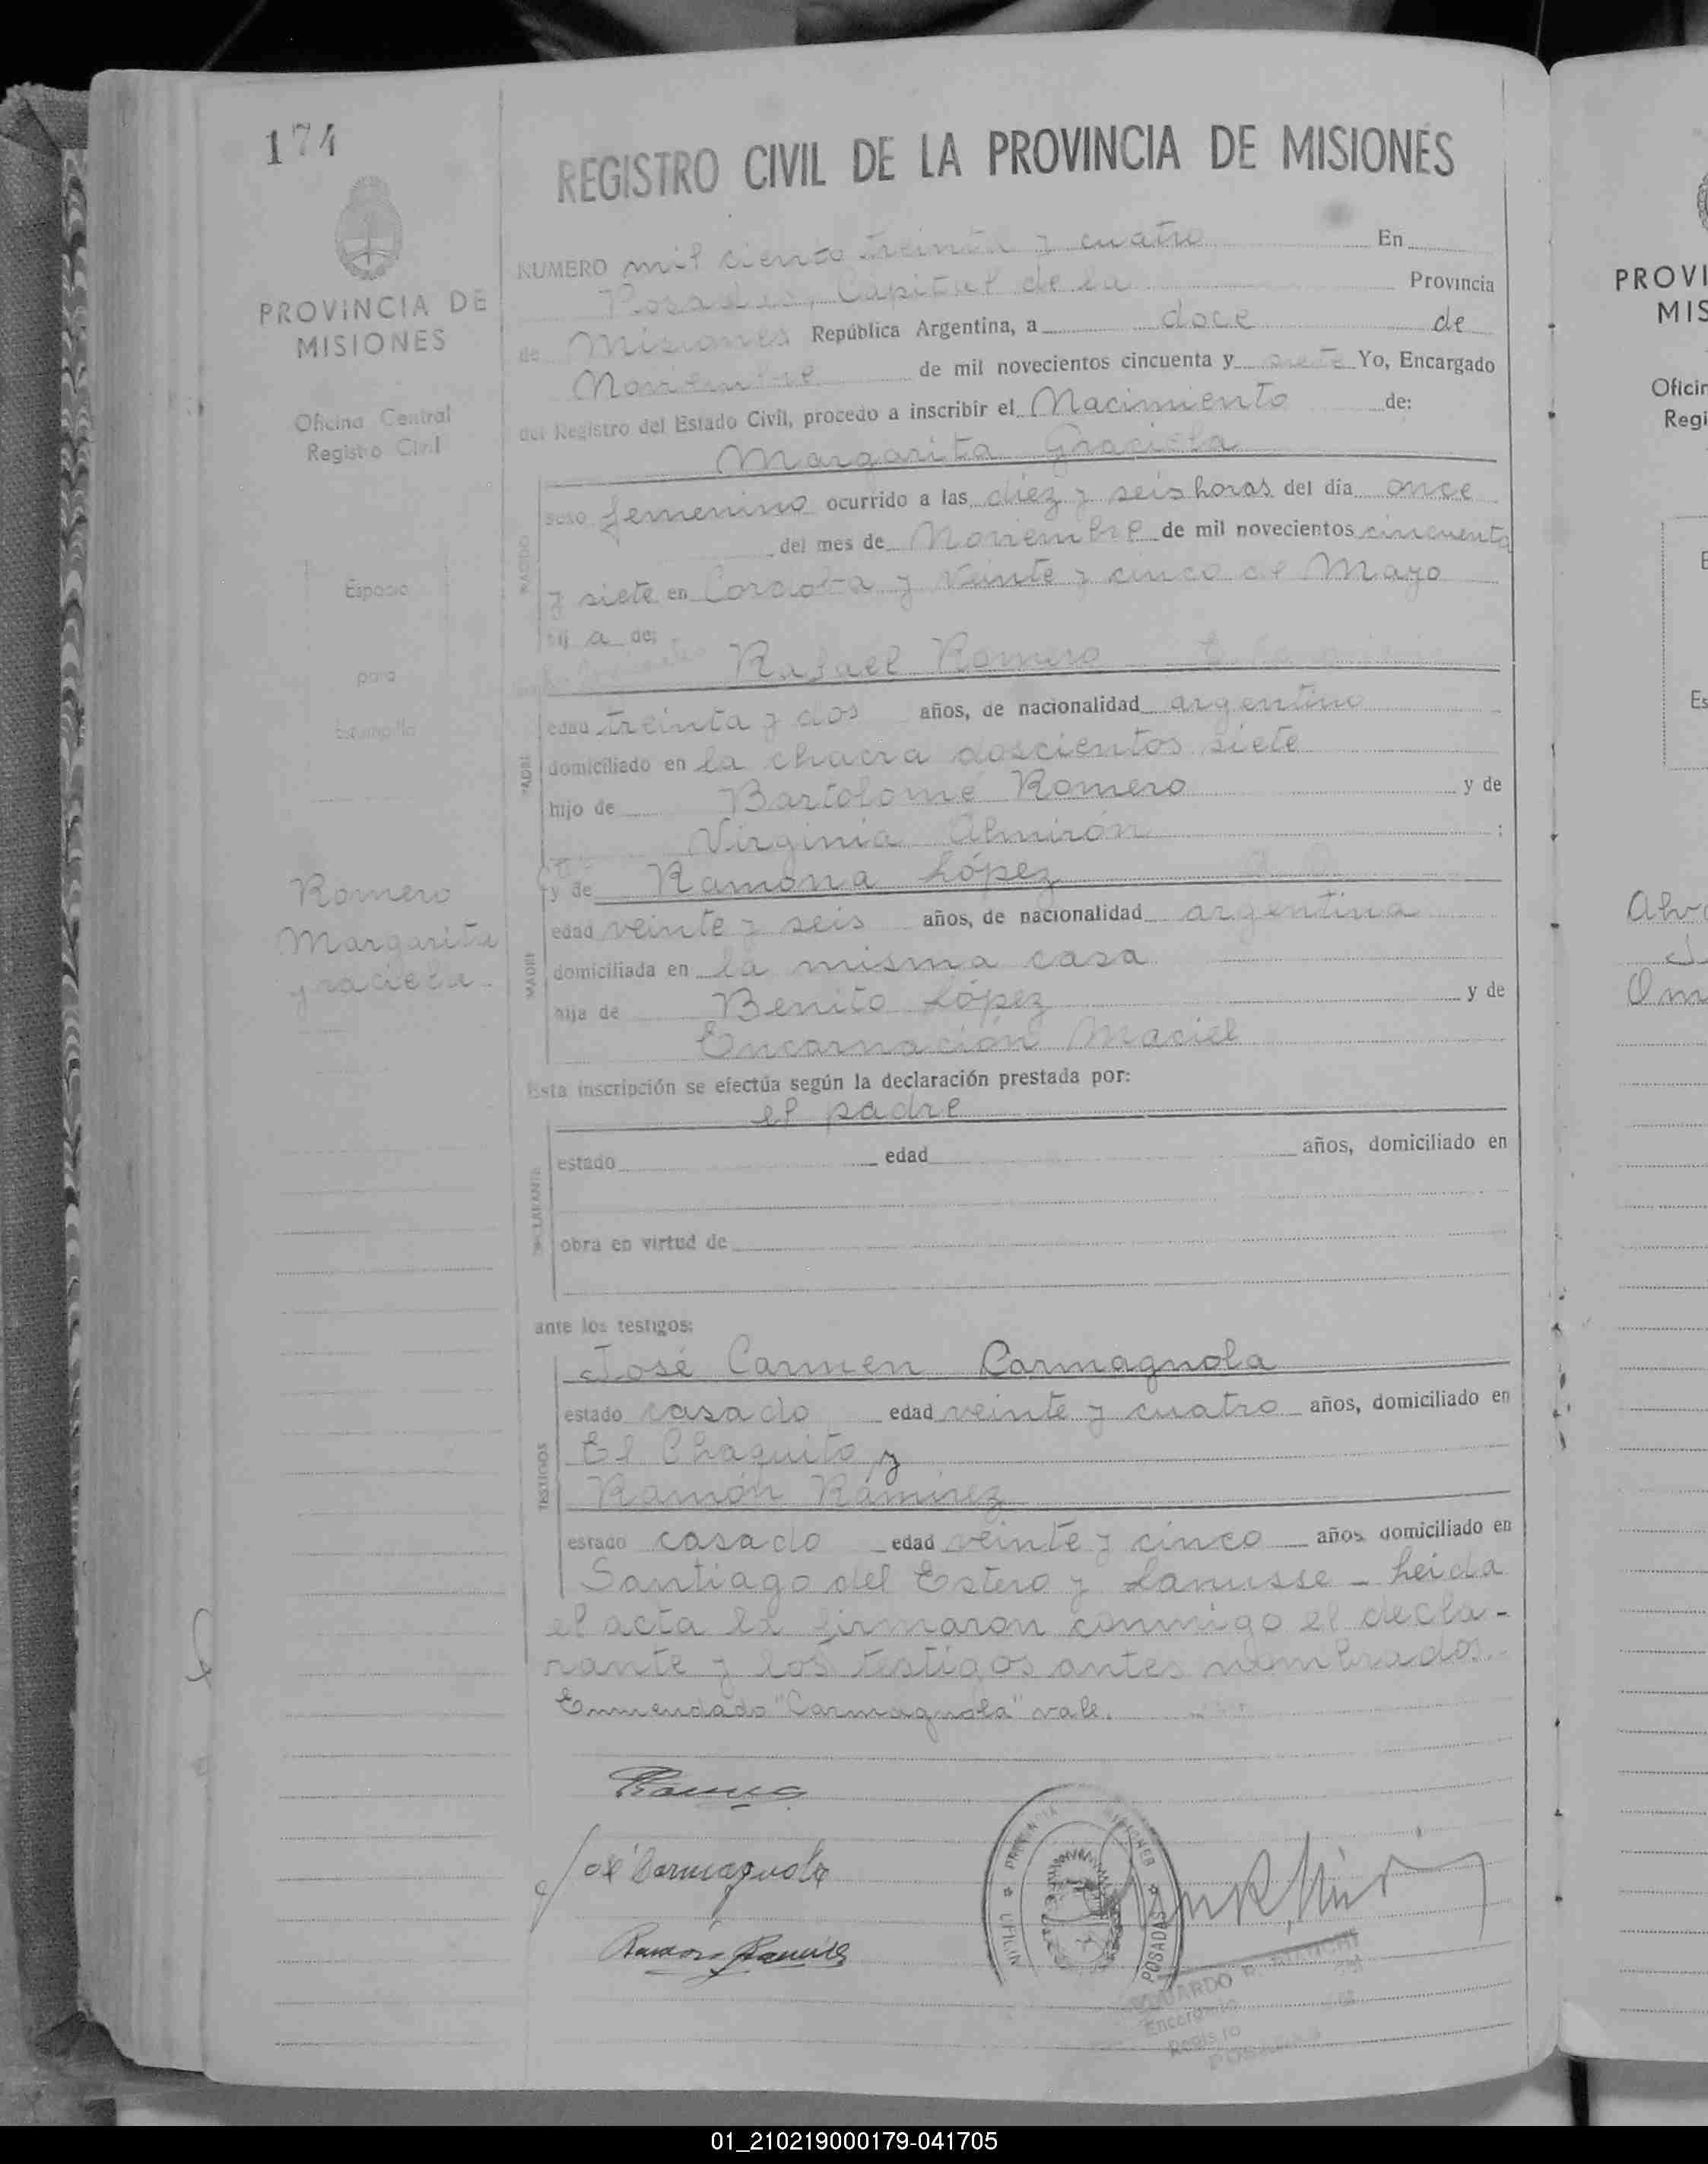 174
REGISTRO CIVIL DE LA PROVINCIA DE MISIONES
PROVINCIA DE
MISIONES
Oficina Central
Registro Civil
Espacio
para
Estampilla
Romero
Margarita
graciela.
NUMERO mil ciento treinta y cuatro En
Posadas, Capital de la Provincia
de Misiones República Argentina, a doce de
Noviembre de mil novecientos cincuenta y siete Yo, Encargado
del Registro del Estado Civil, procedo a inscribir el Nacimiento de:
Margarita Graciela
NACIDO
sexo femenino ocurrido a las diez y seis horas del día once
del mes de Noviembre de mil novecientos cincuenta
y siete en Cordoba y Veinte y cinco de Mayo
hij a de:
Rafael Romero
PADRE
edad treinta y dos años, de nacionalidad argentino
domiciliado en la chacra doscientos siete
hijo de Bartolome Romero y de
Virginia Almirón ;
y de Ramona López
MADRE
edad veinte y seis años, de nacionalidad argentina
domiciliada en la misma casa
hija de Benito López y de
Encarnación Maciel
Esta inscripción se efectúa según la declaración prestada por:
el padre
estado edad años, domiciliado en
obra en virtud de
ante los testigos:
José Carmen Carmagnola
TESTIGOS
estado casado edad veinte y cuatro años, domiciliado en
El Chaquito y
Ramón Ramirez
estado casado edad veinte y cinco años domiciliado en
Santiago del Estero y Lanusse - Leida
el acta la firmaron conmigo el decla-
rante y los testigos antes nombrados.
Enmendado "Carmagnola" vale.
José Carmagnola
Ramón Ramirez
PROVINCIA MISIONES
POSADAS
Encargado
Registro
PROVI
MIS
Oficin
Regi
01_210219000179-041705